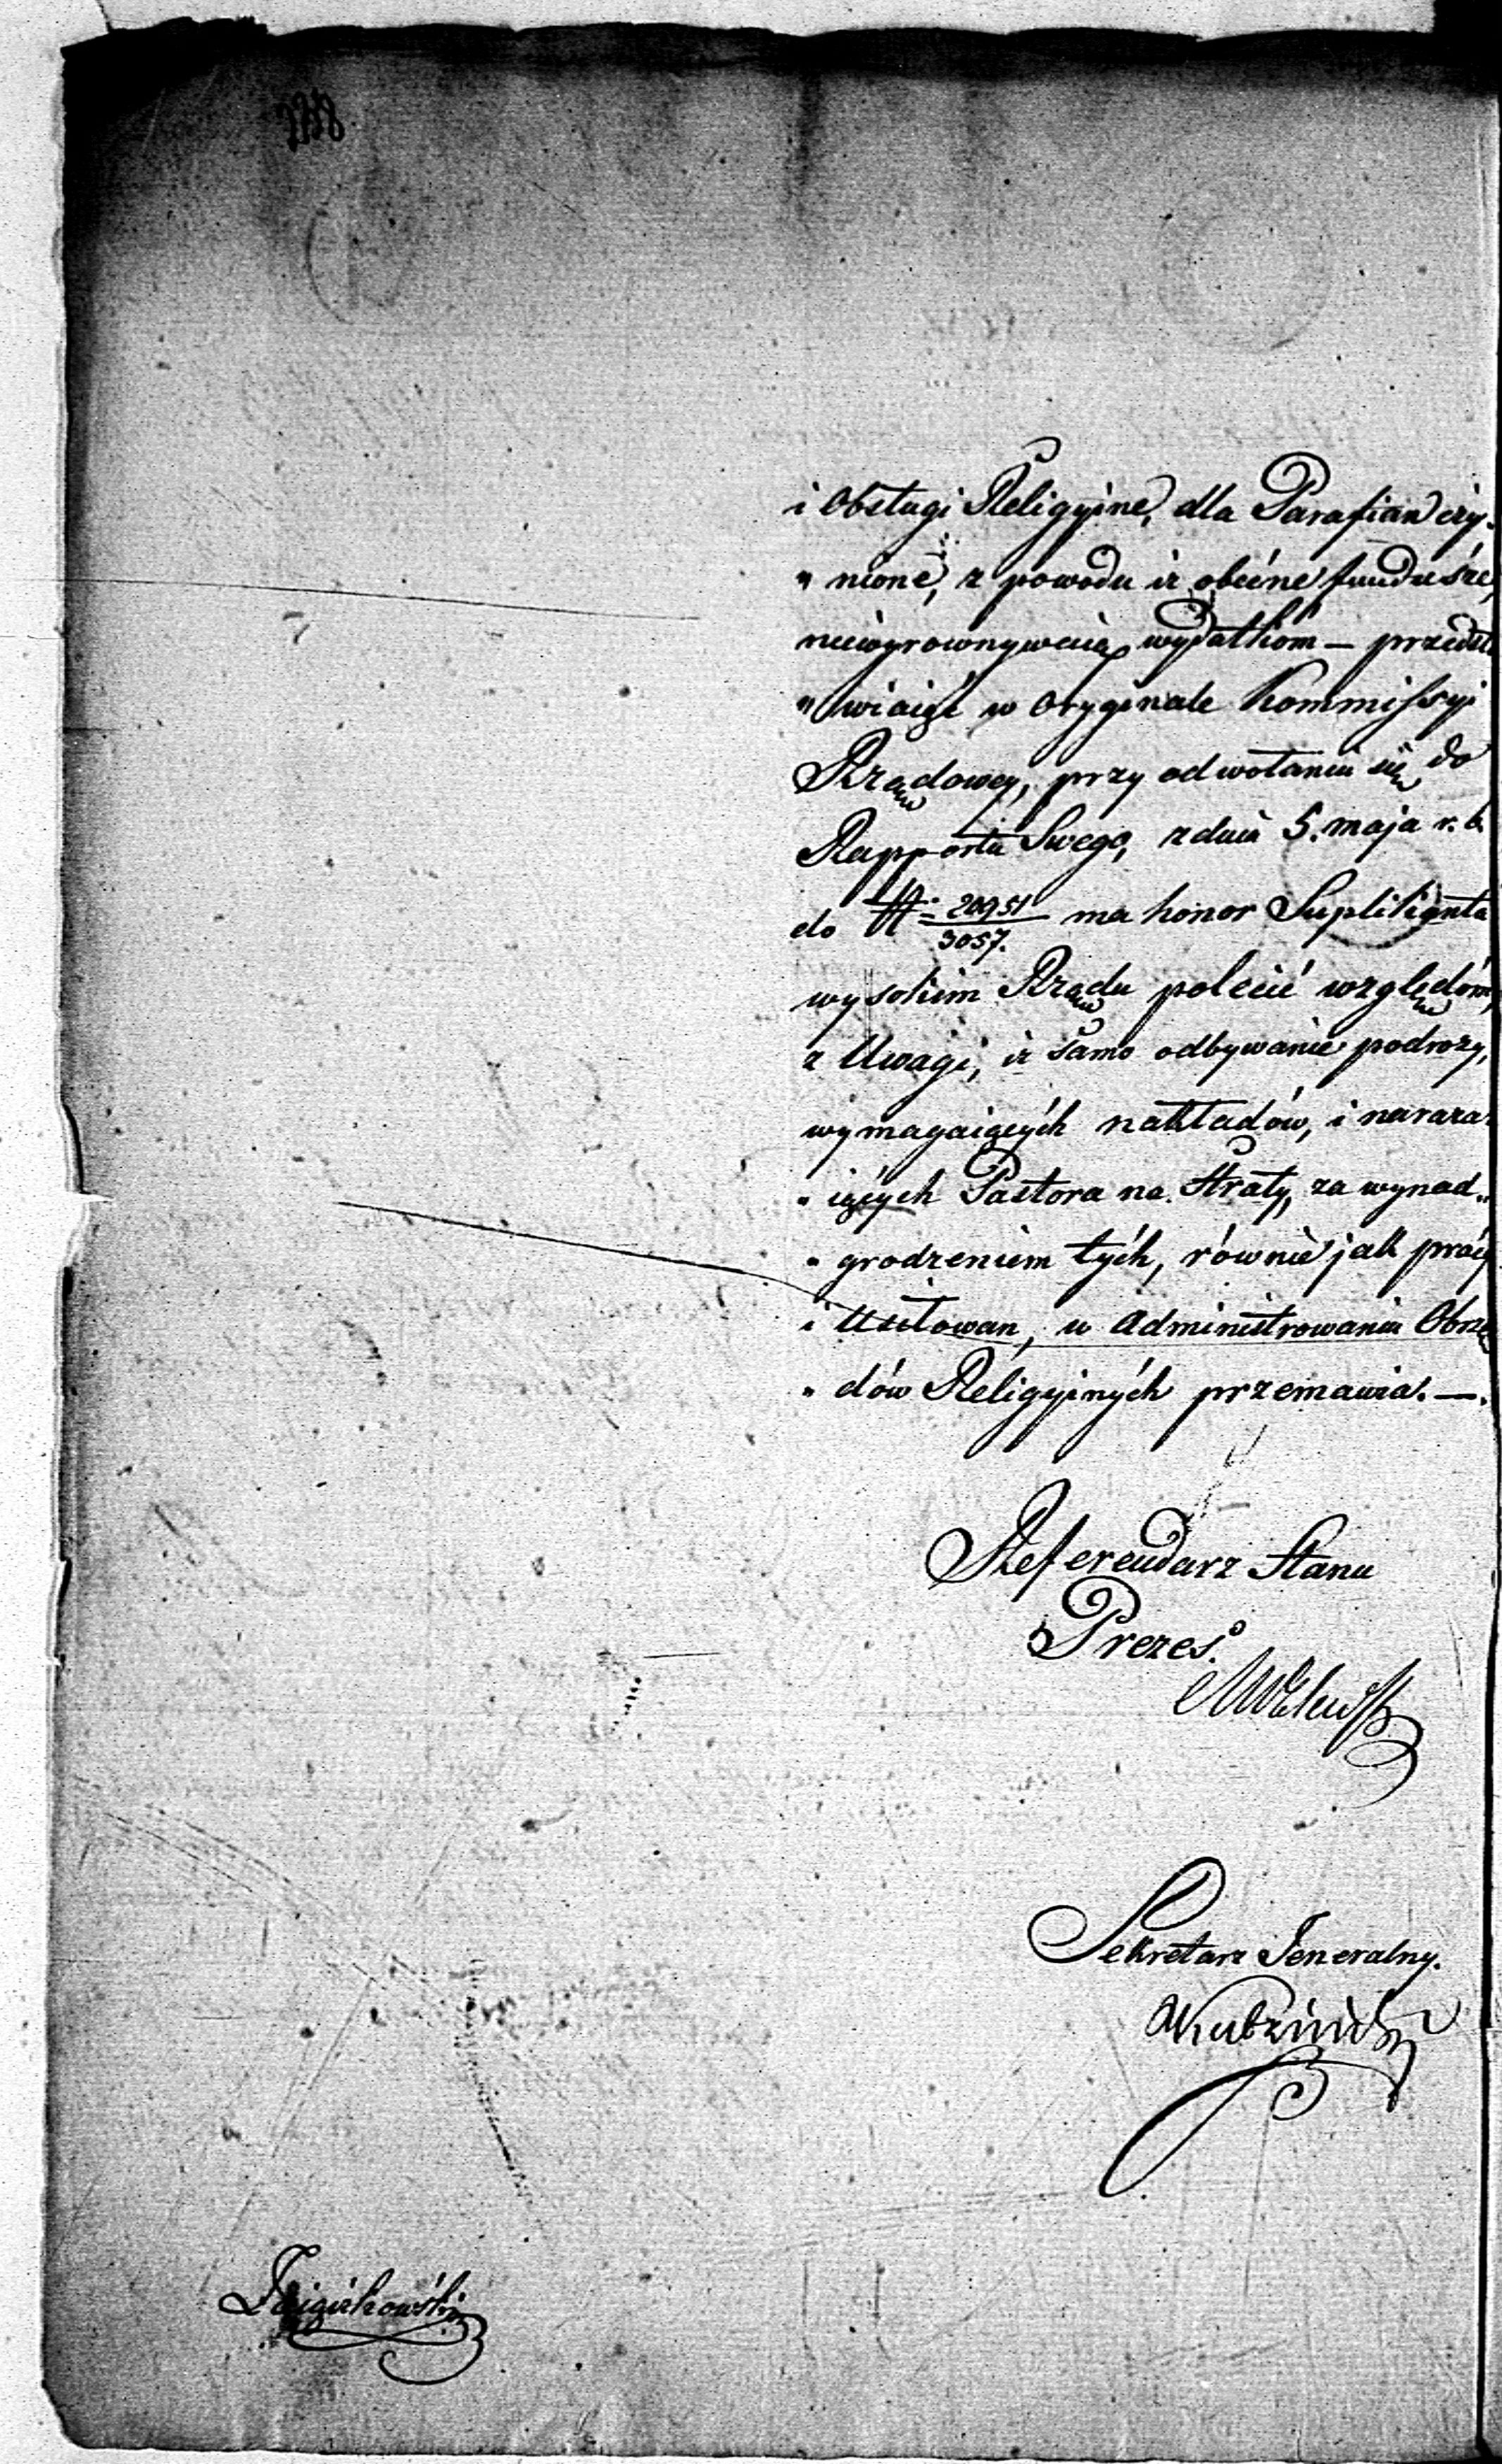 i Obsługi Religyine, dla Parafian czy-
„ nione, z powodu iż obecne fundusze,
niewyrownywaią wydatkom — przedsta
„ wiaiąc w Oryginale Kommissyi
Rządowey, przy odwołaniu się do
Rapportu Swego, z dnia 5. maja r. b.
do N. 20951/3057. ma honor Suplikanta
wysokim Rządu polecić względom,
z Uwagi, iż samo odbywanie podroży,
wymagaiących nakładów, i naraża-
„ iących Pastora na Straty, za wynad„
„ grodzeniem tych, równie jak pracy
i Usiłowan, w Administrowaniu Obrzę
„ dów Religyinych przemawia. —.
Referendarz Stanu
Prezes.
Sekretarz Jeneralny.